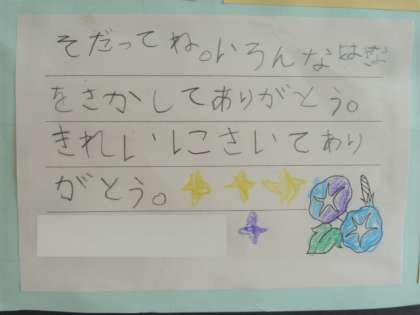 そだってね。いろんなはな
をさかしてありがとう。
きれいにさいてあり
がとう。